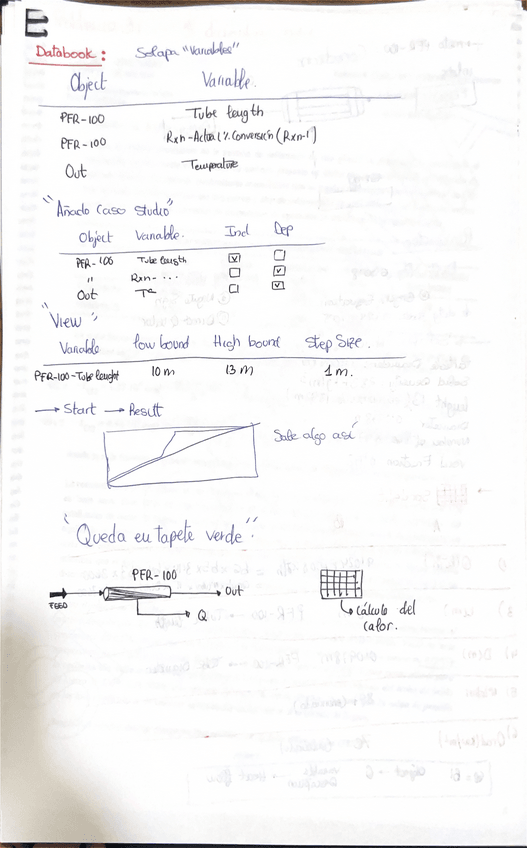 E
Databook: Solapa "Variables"
Object Variable.
PFR-100 Tube length
PFR-100 Rxn-Actual % Conversión (Rxn-1)
Out Temperature
"Añado Caso Studio"
Object Variable. Ind Dep
PFR-100 Tube length ☑ ☐
" Rxn-... ☐ ☑
Out Tª ☐ ☑
"View"
Variable low bound High bound Step Size.
PFR-100-Tube lenght 10 m 13 m 1 m.
→ Start → Result
Sale algo así
"Queda eu tapete verde".
PFR-100
FEED Out
Q
↳ Cálculo del
calor.